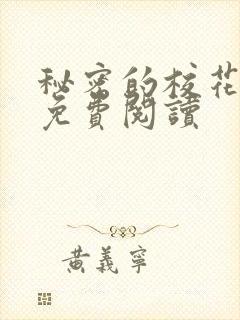 秘密的校花
免費閱讀
黃義寧